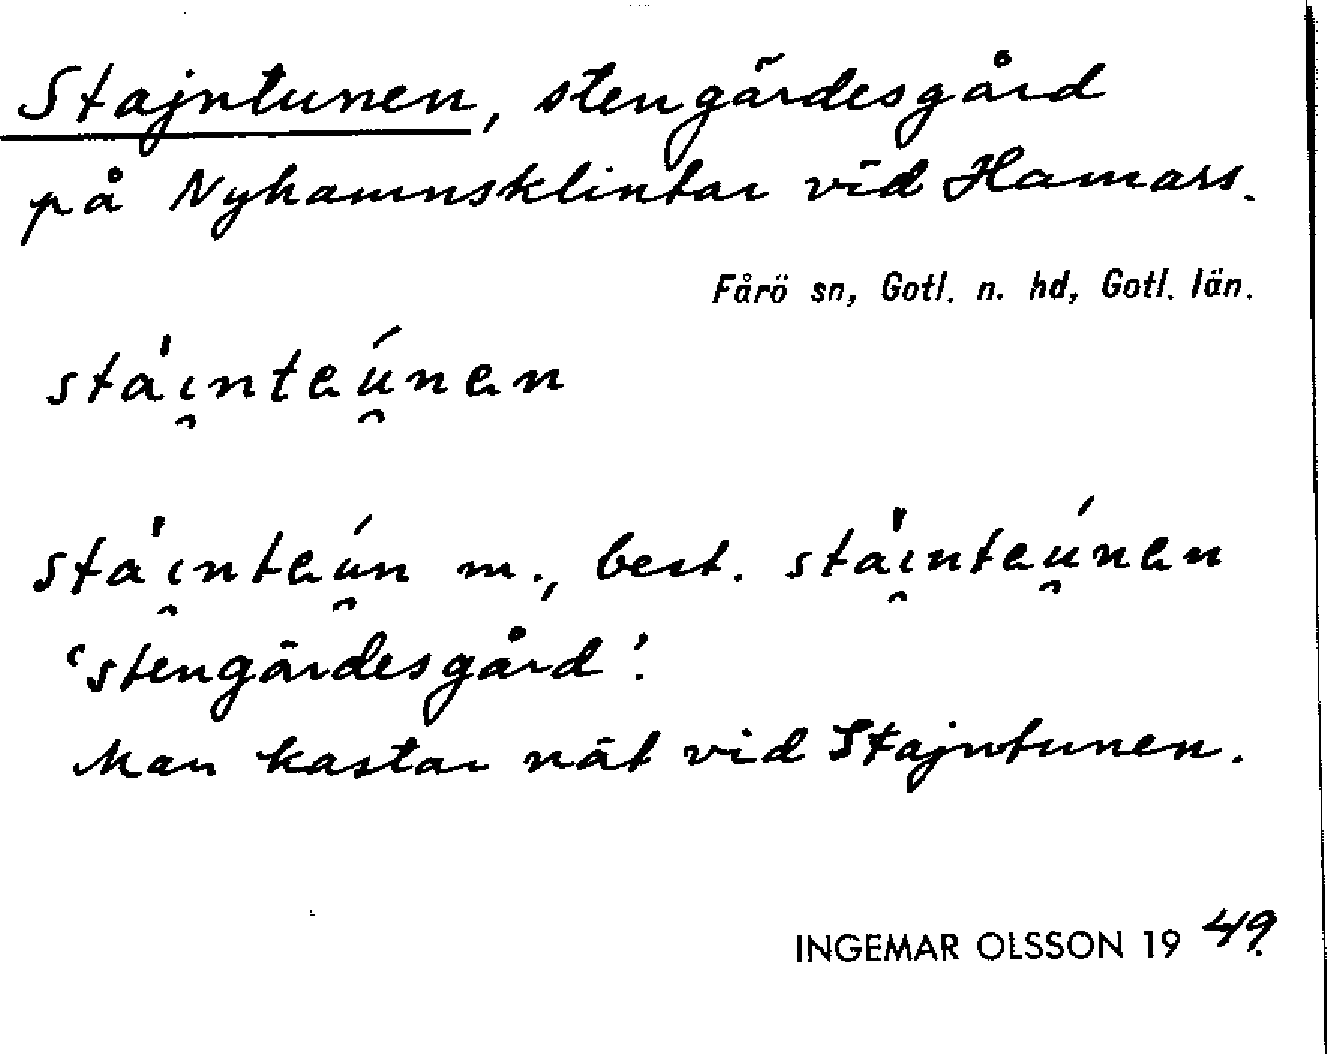 Stajntunen, stengärdesgård
på Nyhamnsklintar vid Hamars.
Fårö sn, Gotl. n. hd, Gotl. län.
sta̍i̯nteú̯nen
sta̍i̯nteú̯n m., best. sta̍i̯nteú̯nen
‘stengärdesgård’.
Man kastar nät vid Stajntunen.
INGEMAR OLSSON 1949.